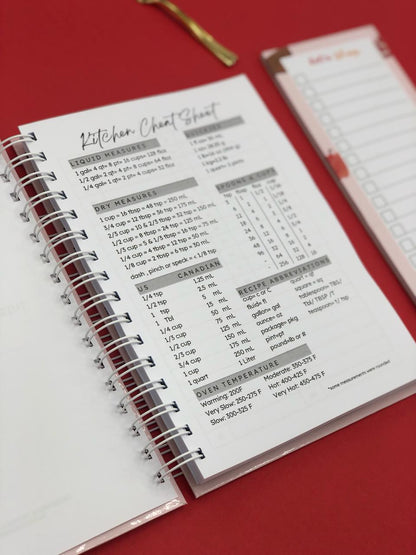 Kitchen Cheat Sheet
LIQUID MEASURES
1 gal= 4 qt= 8 pt= 16 cups= 128 floz
1/2 gal= 2 qt= 4 pt= 8 cups= 64 floz
1/4 gal= 1 qt= 2 pt= 4 cups= 32 floz
DRY MEASURES
1 cup = 16 tbsp = 48 tsp = 250 mL
3/4 cup = 12 tbsp = 36 tsp = 175 mL
2/3 cup = 10 & 2/3 tbsp = 32 tsp = 150 mL
1/2 cup = 8 tbsp = 24 tsp = 125 mL
1/3 cup = 5 & 1/3 tbsp = 16 tsp = 75 mL
1/4 cup = 4 tbsp = 12 tsp = 50 mL
1/8 cup = 2 tbsp = 6 tsp = 30 mL
dash , pinch or speck = < 1/8 tsp
SPOONS & CUPS
tsp tbsp floz cup
US CANADIAN
1/4 tsp 1.25 mL
1/2 tsp 2.5 mL
1 tsp 5 mL
1 Tbl 15 mL
1/4 cup 50 mL
1/3 cup 75 mL
1/2 cup 125 mL
2/3 cup 150 mL
3/4 cup 175 mL
1 cup 250 mL
1 quart 1 Liter
RECIPE ABBREVIATIONS
cup= c or C
fluid= fl
gallon= gal
ounce= oz
package= pkg
pint=pt
pound=lb or #
quart = qt
square = sq
tablespoon= TBS/
Tbl/ TBSP /T
teaspoon= t/ tsp
OVEN TEMPERATURE
Warming: 200F
Very Slow: 250-275 F
Slow: 300-325 F
Moderate: 350-375 F
Hot: 400-425 F
Very Hot: 450-475 F
*some measurements were rounded